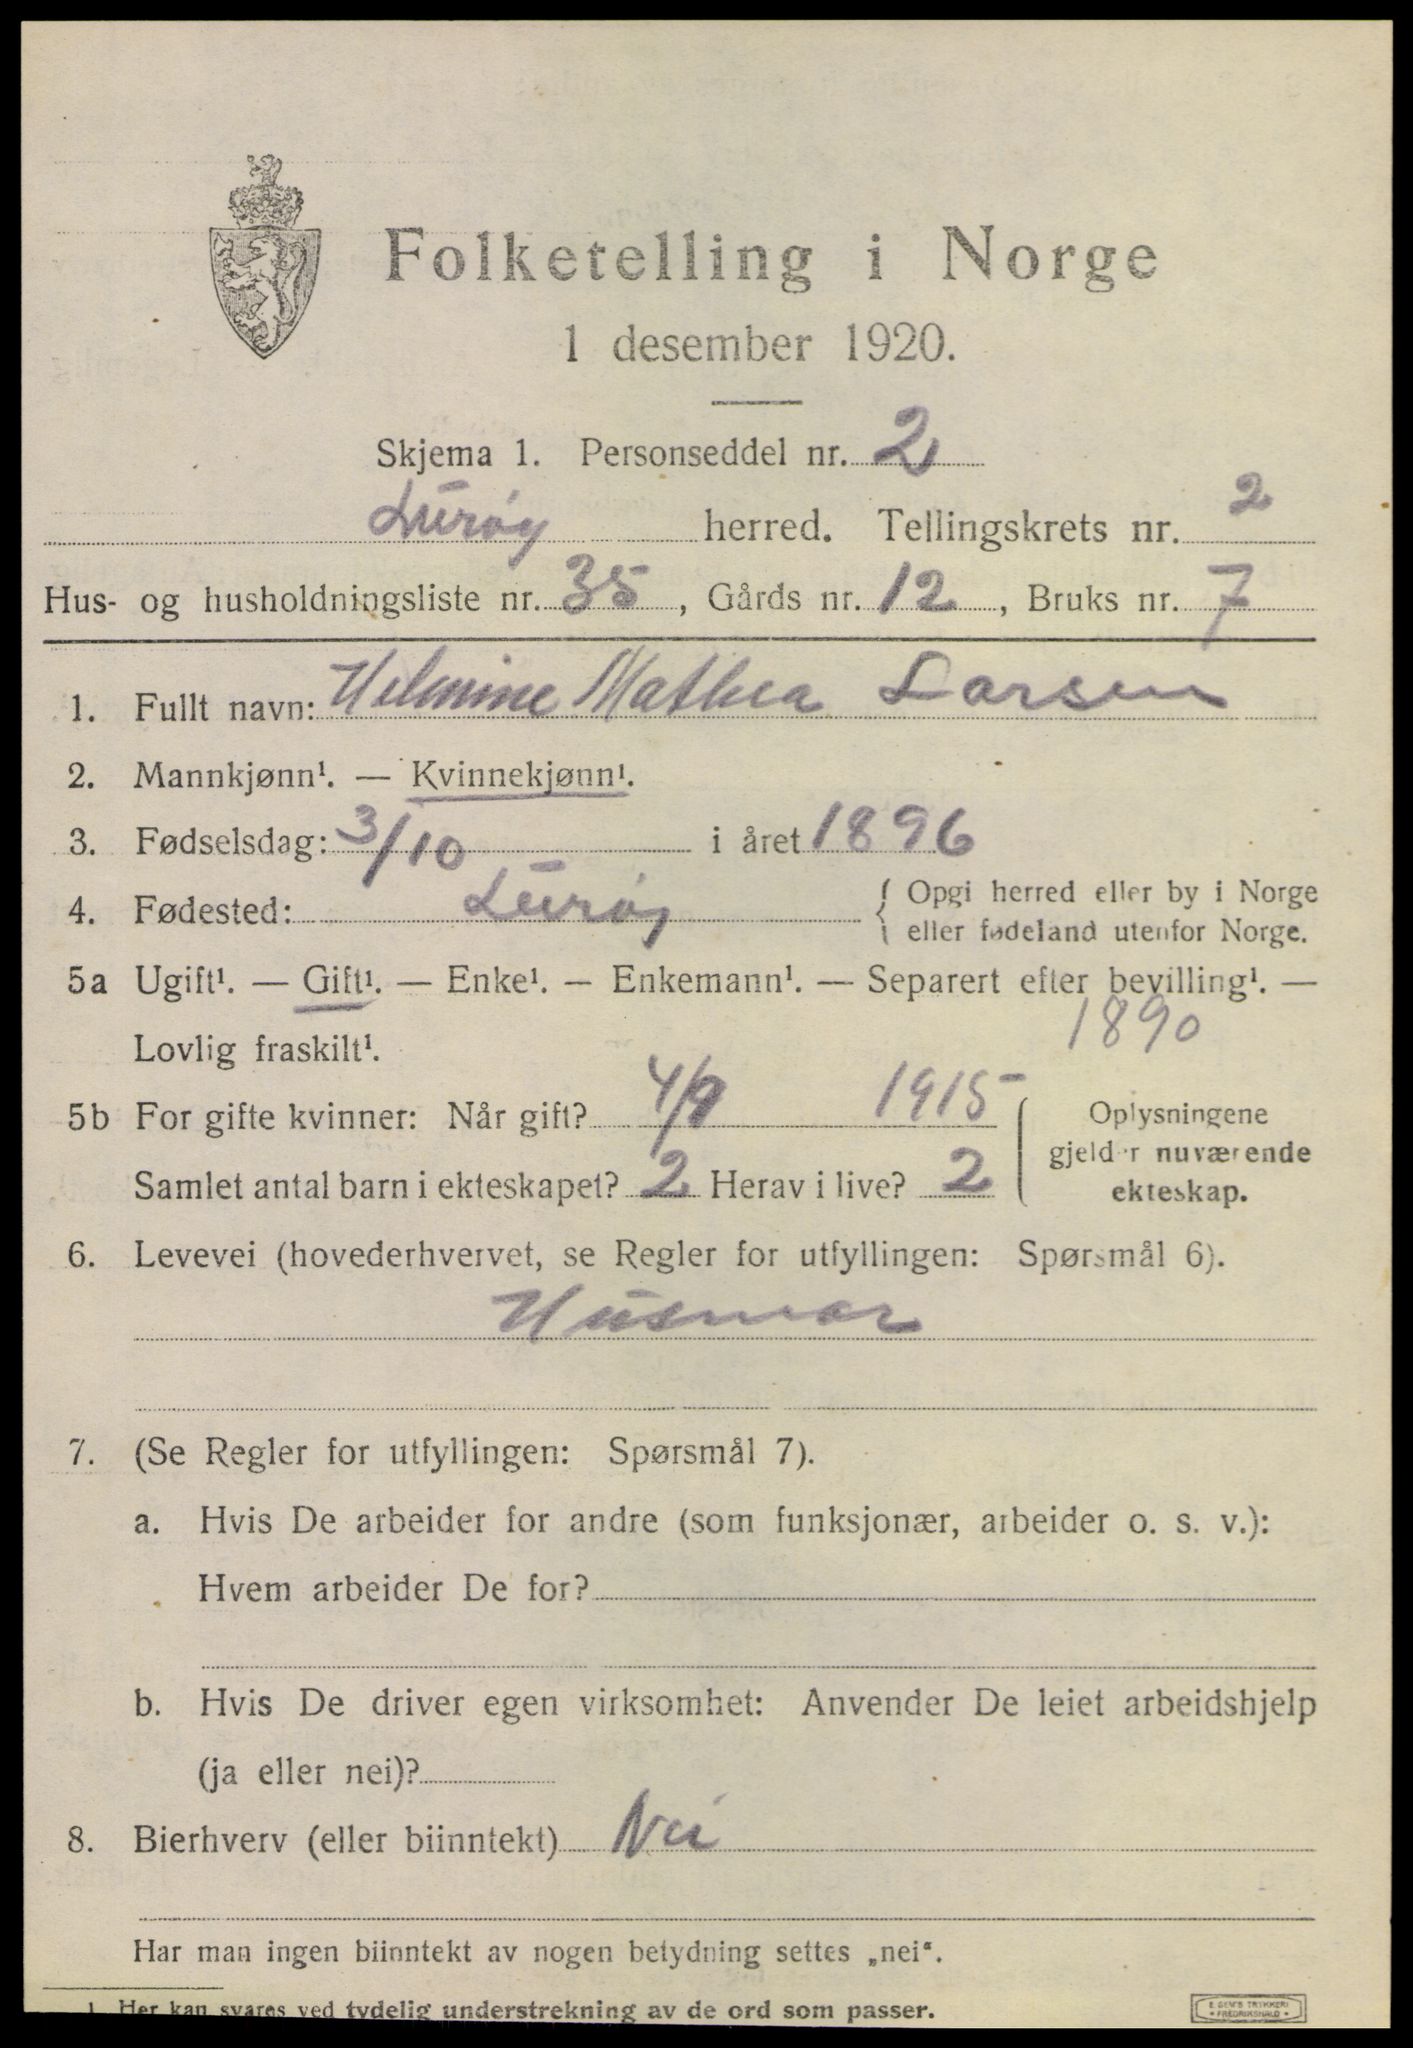 Folketelling i Norge
1 desember 1920.
Skjema 1. Personseddel nr. 2
Lurøy herred. Tellingskrets nr. 2
Hus- og husholdningsliste nr. 35, Gårds nr. 12, Bruks nr. 7
1. Fullt navn: Helmine Mathea Larsen
2. Mannkjønn¹. — Kvinnekjønn¹.
3. Fødselsdag: 3/10 i året 1896
4. Fødested: Lurøy { Opgi herred eller by i Norge
eller fødeland utenfor Norge.
5a Ugift¹. — Gift¹. — Enke¹. — Enkemann¹. — Separert efter bevilling¹. —
Lovlig fraskilt¹. 1890
5b For gifte kvinner: Når gift? 4/9 1915 { Oplysningene
gjelder nuværende
Samlet antal barn i ekteskapet? 2 Herav i live? 2 ekteskap.
6. Levevei (hovederhvervet, se Regler for utfyllingen: Spørsmål 6).
Husmor
7. (Se Regler for utfyllingen: Spørsmål 7).
a. Hvis De arbeider for andre (som funksjonær, arbeider o. s. v.):
Hvem arbeider De for?
b. Hvis De driver egen virksomhet: Anvender De leiet arbeidshjelp
(ja eller nei)?
8. Bierhverv (eller biinntekt) Nei
Har man ingen biinntekt av nogen betydning settes „nei“.
1. Her kan svares ved tydelig understrekning av de ord som passer.
E. SEM'S TRYKKERI
FREDRIKSHALD